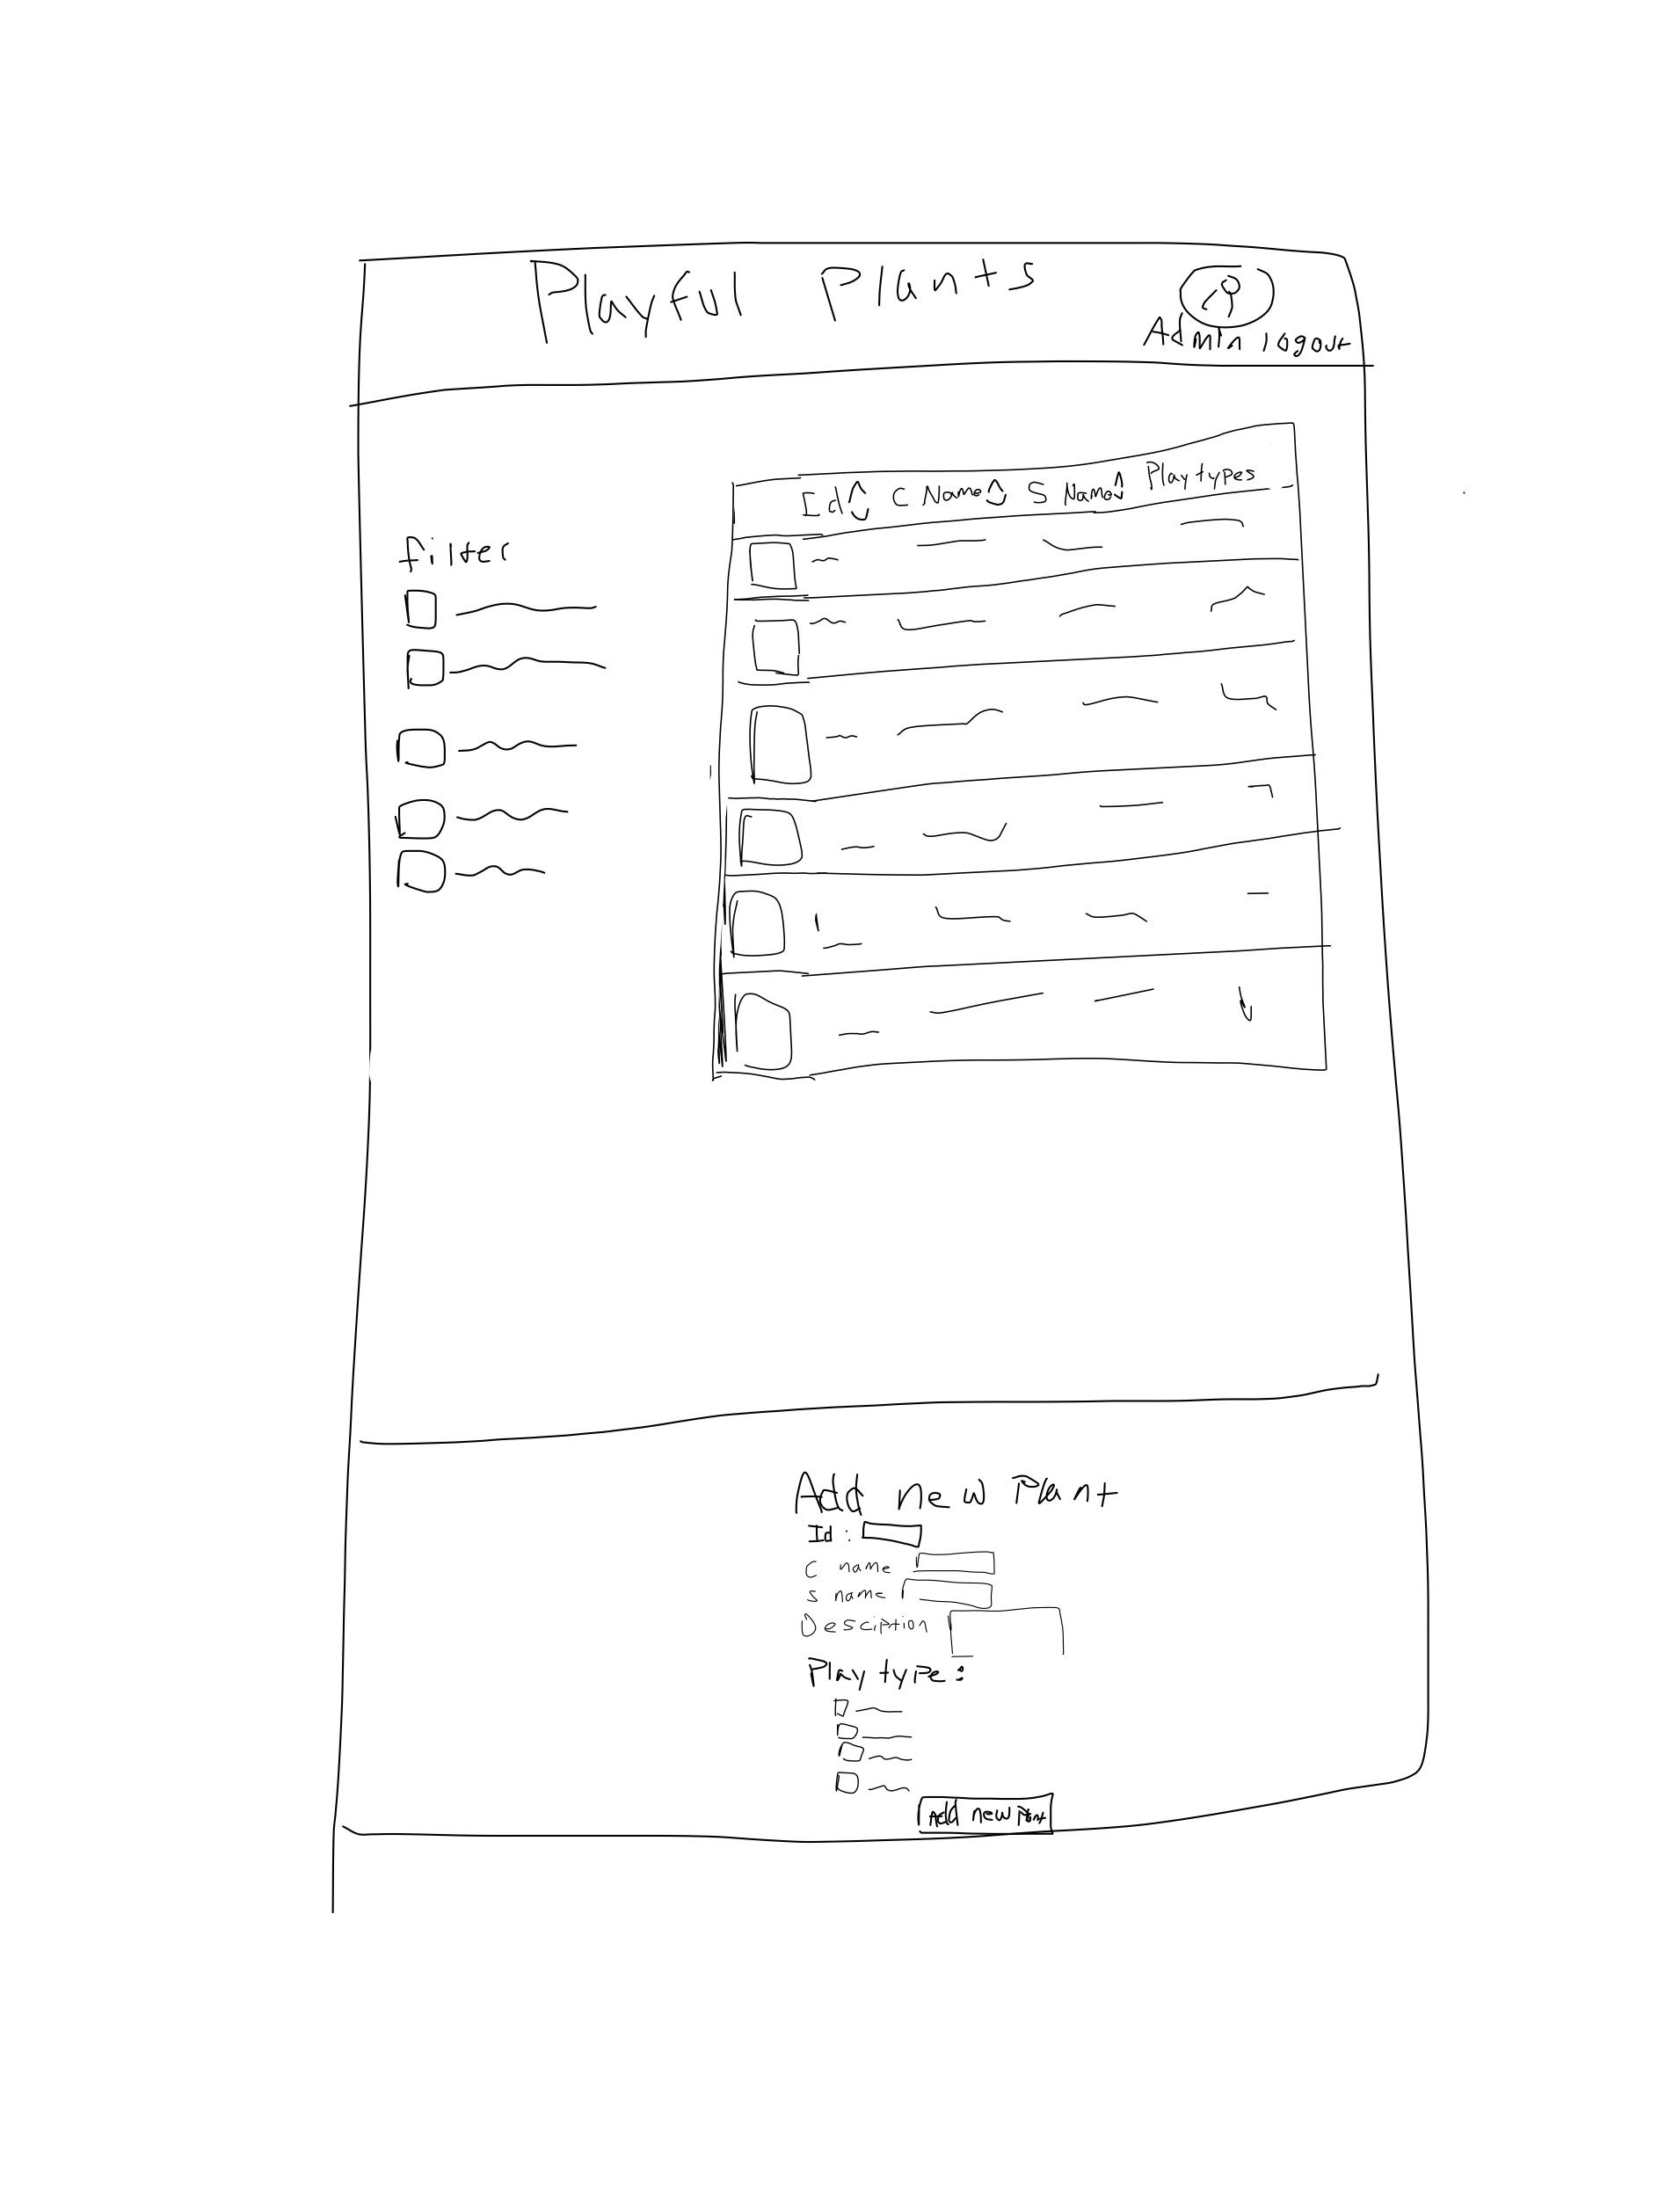 Playful Plants
Admin logout
Id C Name S Name Playtypes
filter
Add new Plant
Id :
C name
S name
Desciption
Play type :
Add new Plant